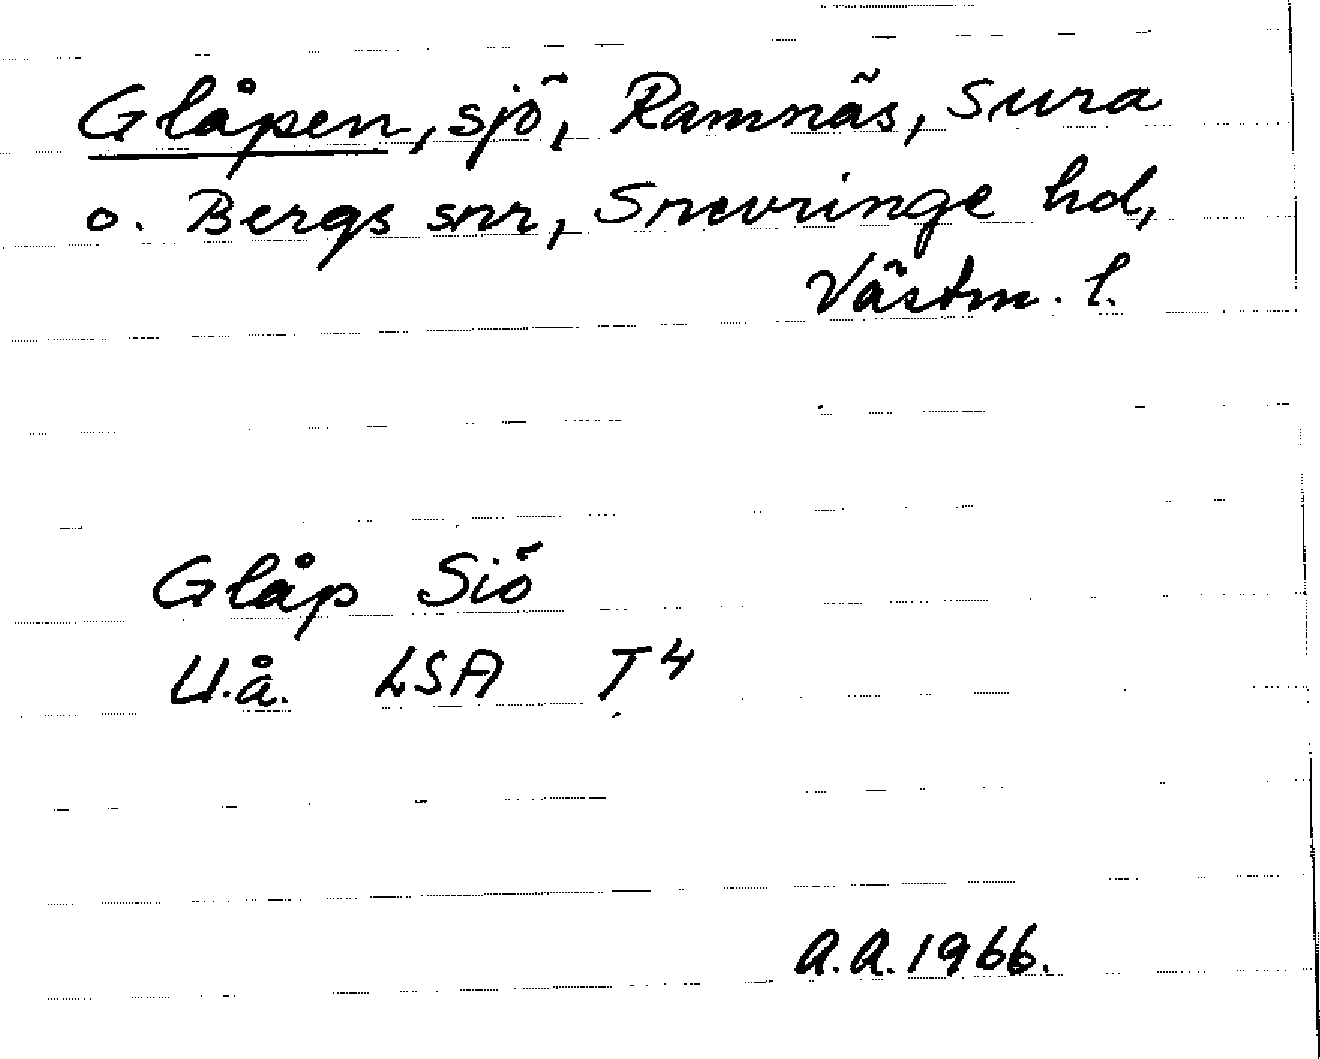 Glåpen, sjö, Ramnäs, Sura
o. Bergs snr, Snevringe hd,
Västm. l.
Glåp Siö
U.å. LSA T4
A.A. 1966.